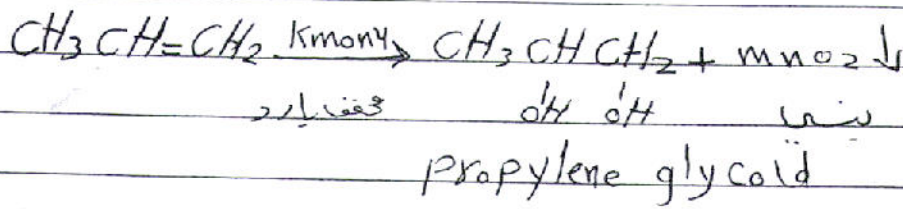 CH3 CH=CH2 Kmon4→ CH3 CH CH2 + mno2↓
مخفف بارد OH OH بني
propylene glycold